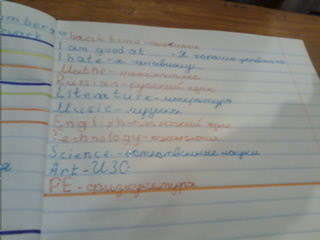 I am good at
I hate - я ненавижу
Maths - математика
Russian - русский язык
Literature - литература
Music - музыка
English - английский язык
Technology - технология
Science - естественные науки
Art - ИЗО
PE - физкультура